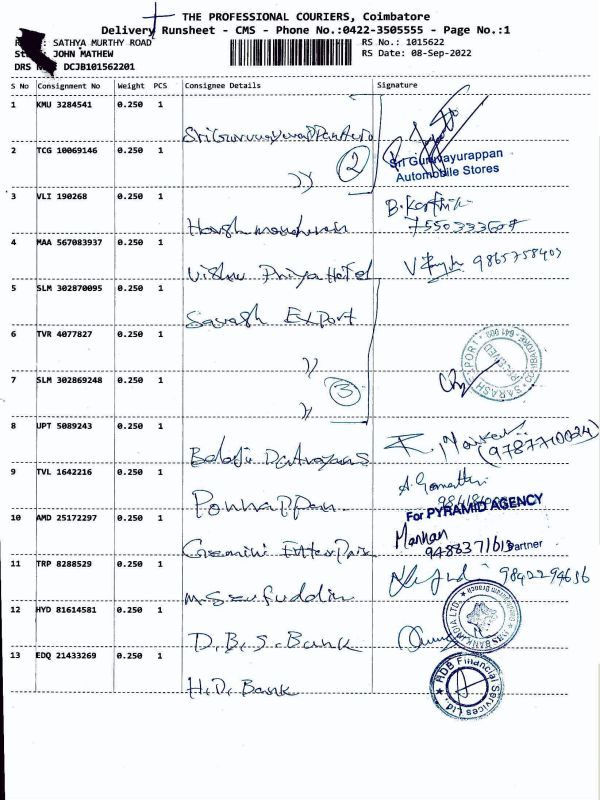 THE PROFESSIONAL COURIERS, Coimbatore
Delivery Runsheet - CMS - Phone No.:0422-3505555 - Page No.:1
: SATHYA MURTHY ROAD
RS No.: 1015622
JOHN MATHEW
RS Date: 08-Sep-2022
DRS DCJB101562201
S No Consignment No Weight PCS Consignee Details Signature
1 KMU 3284541 0.250 1
2 TCG 10069146 0.250 1
2
Sri Guruvayurappan
Automobile Stores
3 VLI 190268 0.250 1
B. Karthik
7550333607
4 MAA 567083937 0.250 1
Vishnu Priya Hotel
9865758407
5 SLM 302870095 0.250 1
Export
6 TVR 4077827 0.250 1
RECEIVED
7 SLM 302869248 0.250 1
3
8 UPT 5089243 0.250 1
Balaji
(9787710024)
9 TVL 1642216 0.250 1
Ponnappan
A. Gomathi
For PYRAMID AGENCY
10 AMD 25172297 0.250 1
9488371613
Partner
11 TRP 8288529 0.250 1
M.S Seyfuddin
9842294636
12 HYD 81614581 0.250 1
D.B.S. Bank
13 EDQ 21433269 0.250 1
H.D. Bank
HDB Financial Services Ltd.